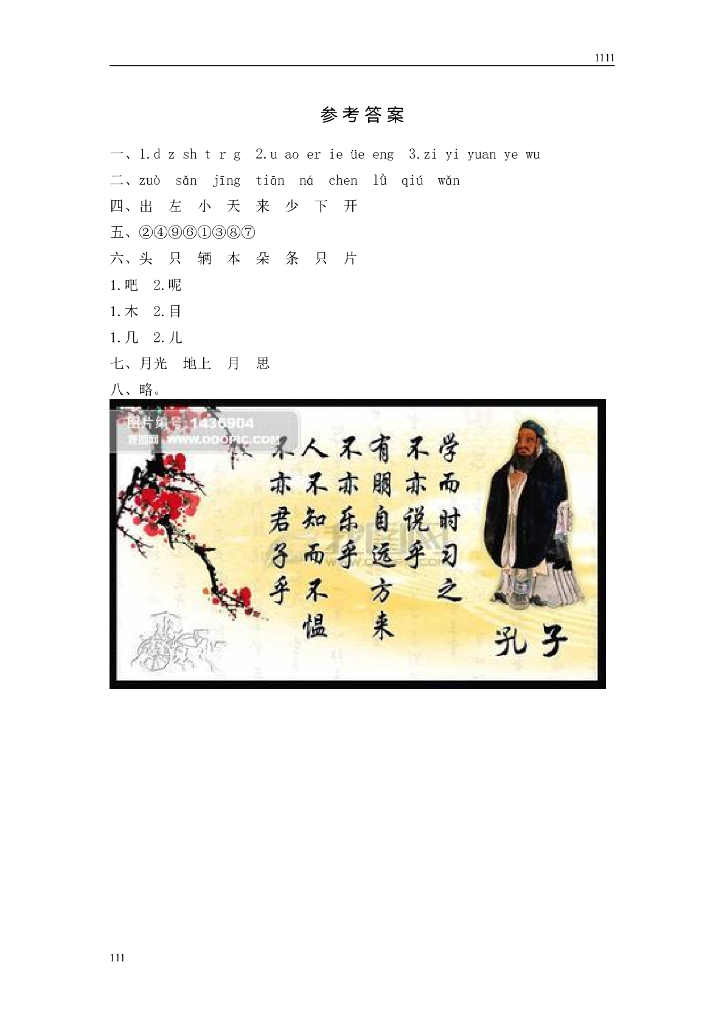 1111
参考答案
一、1.d z sh t r g 2.u ao er ie üe eng 3.zi yi yuan ye wu
二、zuò sǎn jīng tiān ná chen lǜ qiú wǎn
四、出 左 小 天 来 少 下 开
五、②④⑨⑥①③⑧⑦
六、头 只 辆 本 朵 条 只 片
1.吧 2.呢
1.木 2.目
1.几 2.儿
七、月光 地上 月 思
八、略。
图片编号:1436904
我图网 www.ooopic.com
学而时习之
不亦说乎
有朋自远方来
不亦乐乎
人不知而不愠
不亦君子乎
孔子
111